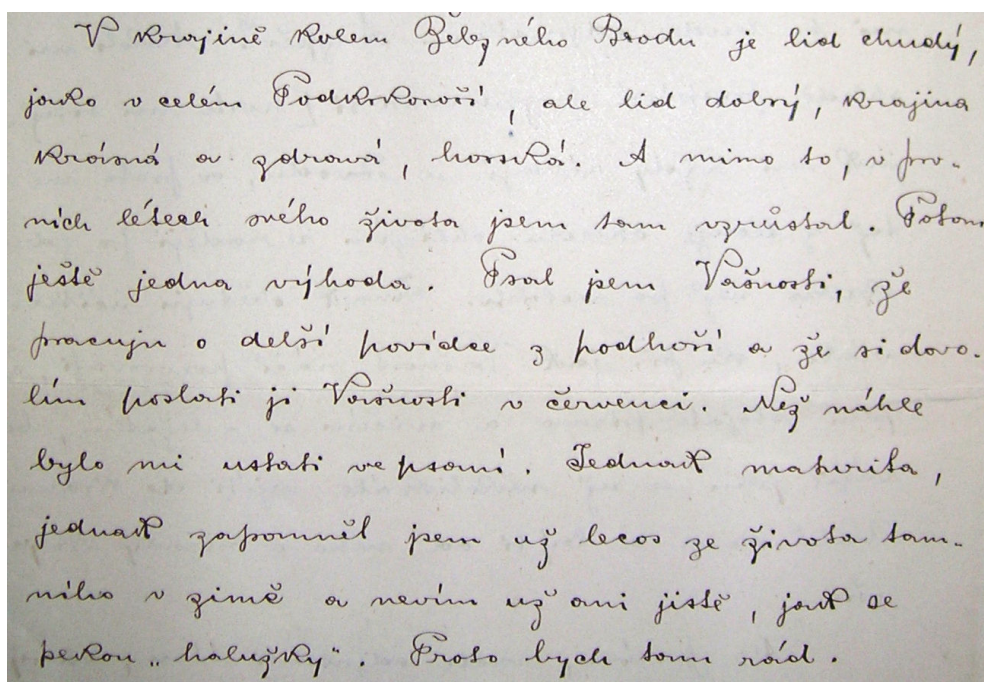 V krajině kolem Železného Brodu je lid chudý,
jako v celém Podkrkonoší, ale lid dobrý, krajina
krásná a zdravá, horská. A mimo to, v prv-
ních létech svého života jsem tam vzrůstal. Potom
ještě jedna výhoda. Psal jsem Vašnosti, že
pracuju o delší povídce z podhoří a že si dovo-
lím poslati ji Vašnosti v červenci. Než náhle
bylo mi ustati ve psaní. Jednak maturita,
jednak zapomněl jsem už lecos ze života tam-
ního v zimě a nevím už ani jistě, jak se
pekou „halužky". Proto bych tam rád.